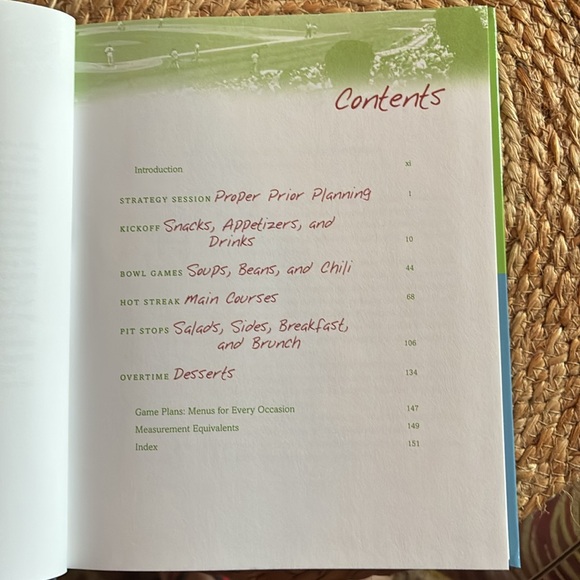 Contents
Introduction xi
STRATEGY SESSION Proper Prior Planning 1
KICKOFF Snacks, Appetizers, and
Drinks 10
BOWL GAMES Soups, Beans, and Chili 44
HOT STREAK Main Courses 68
PIT STOPS Salads, Sides, Breakfast,
and Brunch 106
OVERTIME Desserts 134
Game Plans: Menus for Every Occasion 147
Measurement Equivalents 149
Index 151